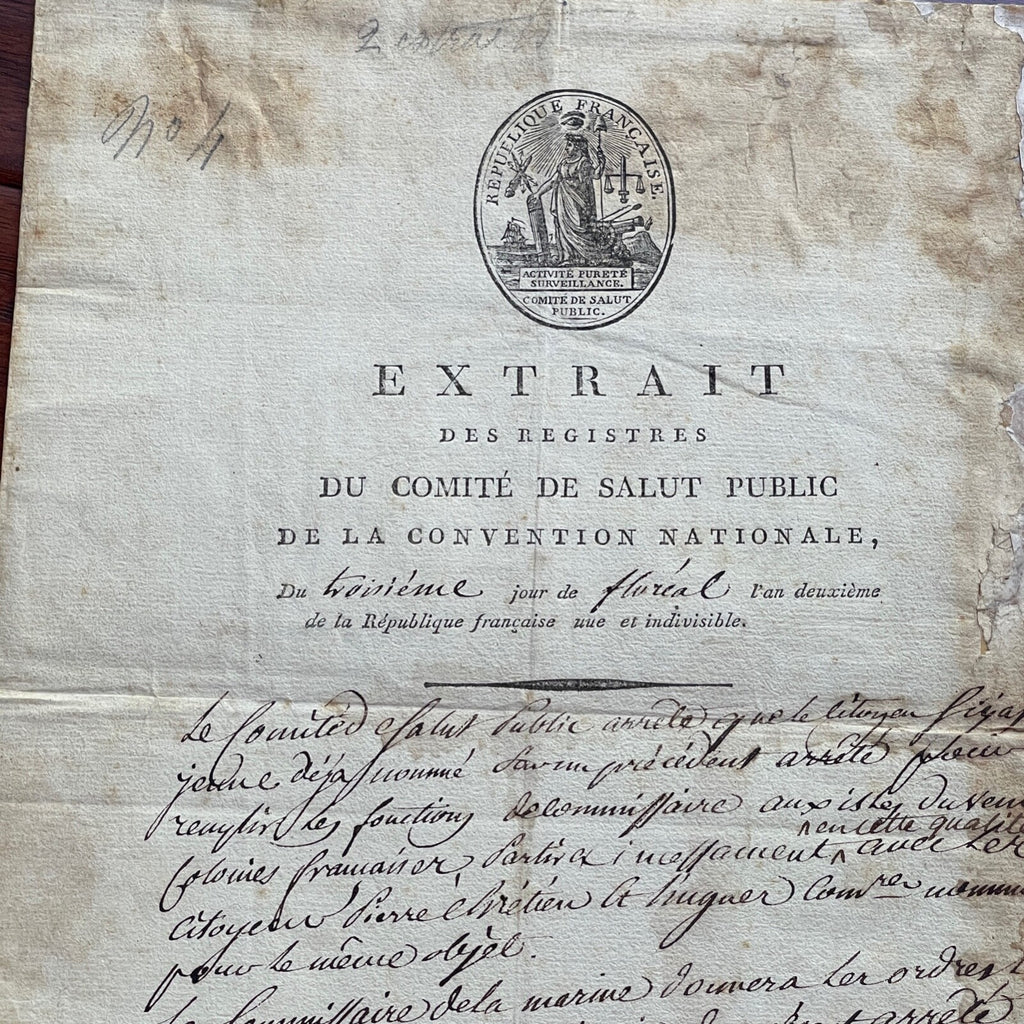 2 extraits
No 4
REPUBLIQUE FRANÇAISE.
ACTIVITÉ PURETÉ
SURVEILLANCE.
COMITÉ DE SALUT
PUBLIC.
EXTRAIT
DES REGISTRES
DU COMITÉ DE SALUT PUBLIC
DE LA CONVENTION NATIONALE,
Du troisiéme jour de floréal l'an deuxième
de la République française une et indivisible.
Le Comité de Salut Public arrête que le Citoyen
jeune déja nommé par un précédent arrêté pour
remplir les fonctions de commissaire aux isles du Vent
en cette qualité
Colonies francaises, Partira incessament avec les
citoyens Pierre Chrétien et hugues Comres nommés
pour le même objet.
Le Commissaire de la marine donnera les ordres
arrêté